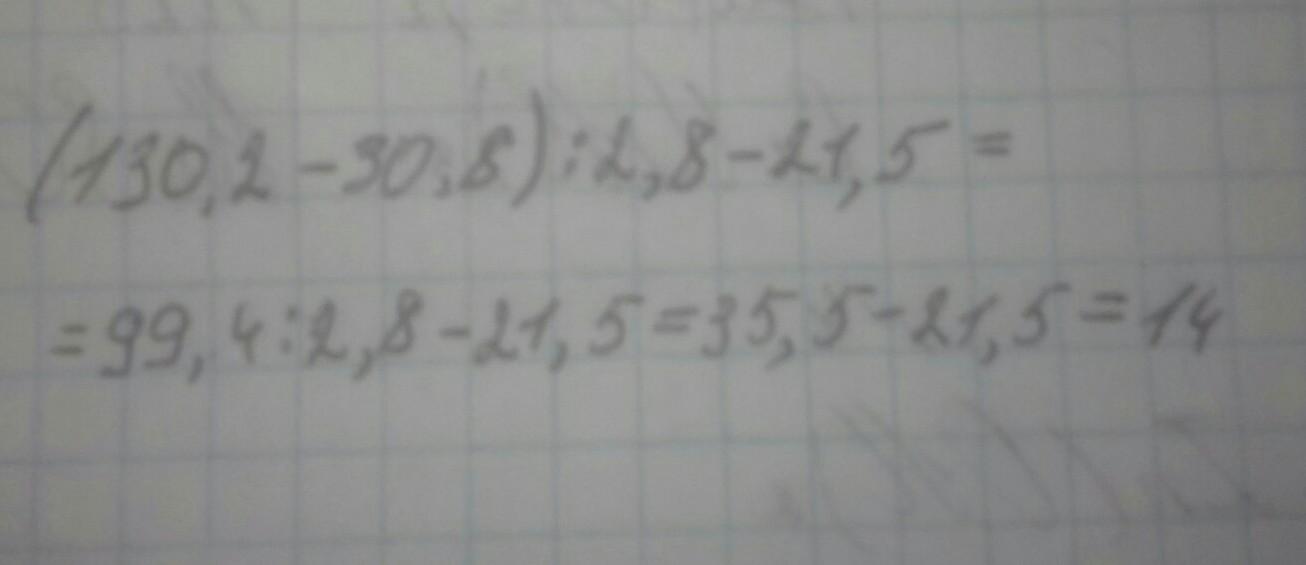 (130,2-30,8):2,8-21,5=
=99,4:2,8-21,5=35,5-21,5=14